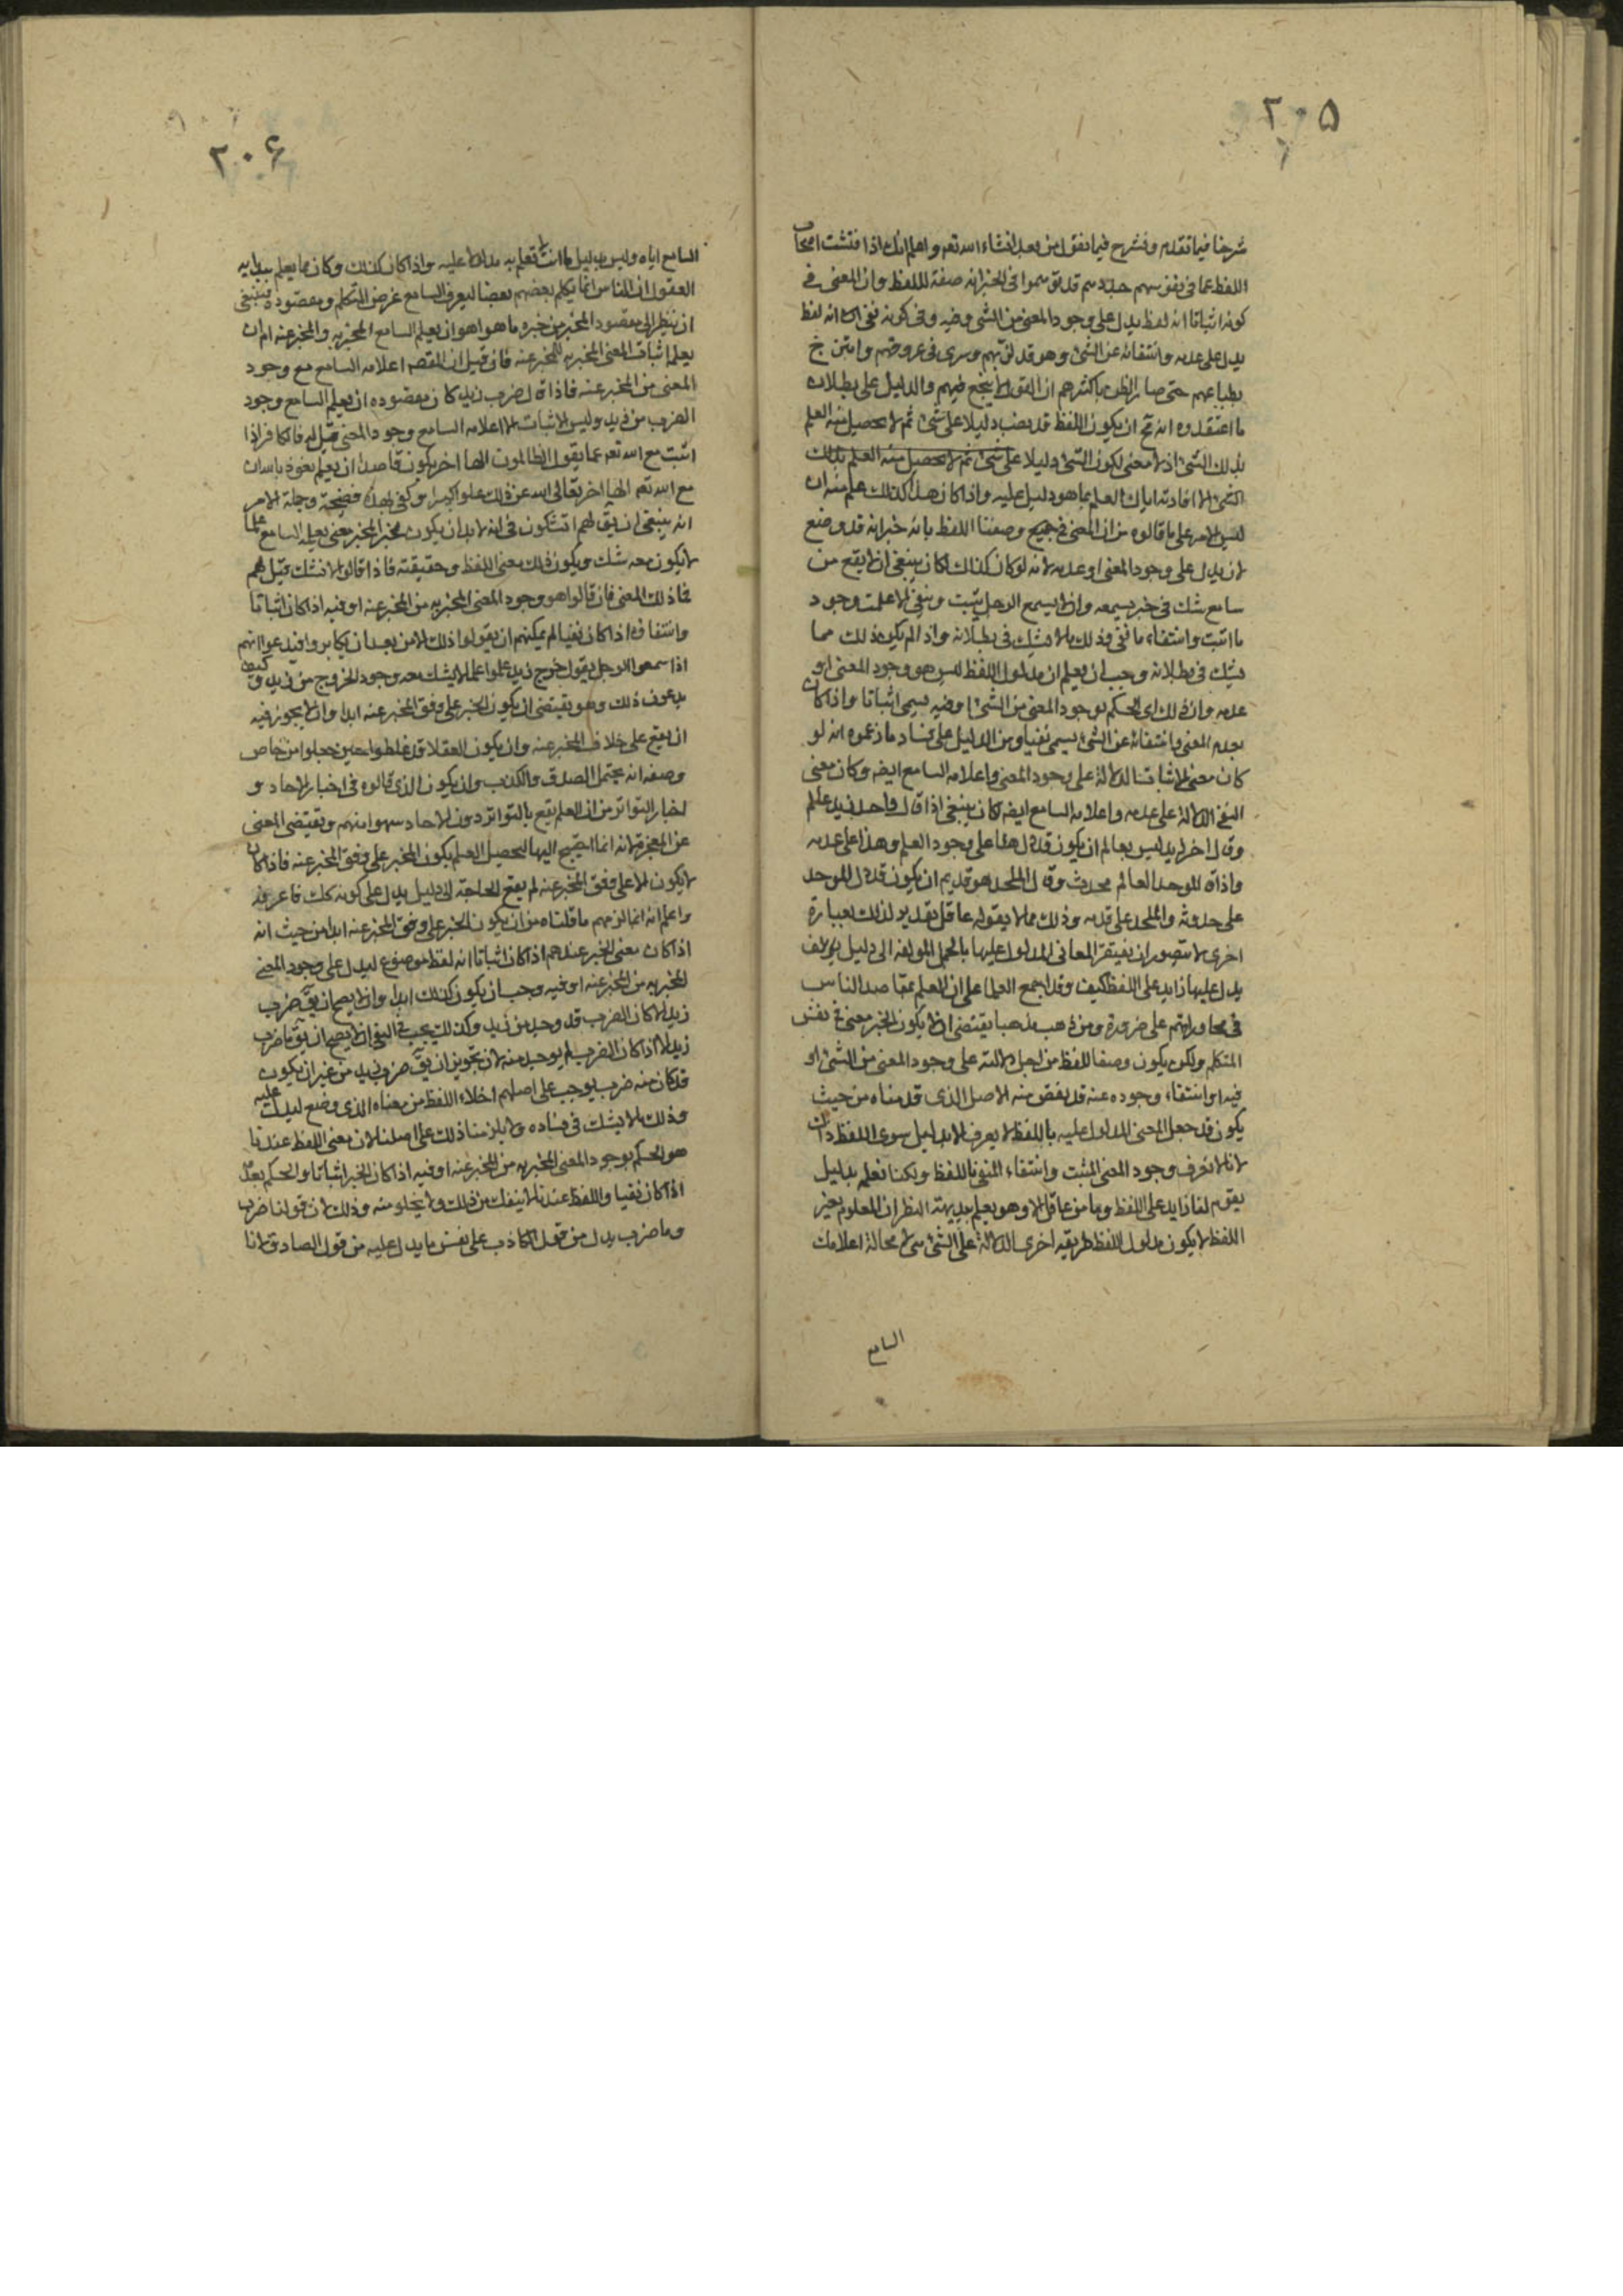 ٢٠٥
شرحنا فيما تقدم ونشرح فيما نقول من بعد انشاء الله تعم واعلم انك اذا فتشت اصحاب
اللفظ عما فى نفوسهم وجدتهم قد توهموا فى الخبر انه صفة للفظ وان المعنى فى
كونه اثباتا انه لفظ يدل على وجود المعنى من الشئ وفيه وفى كونه نفى انه لفظ
يدل على عدمه وانتفائه عن الشئ وهو قد لزمهم وسرى فى عروقهم وامتزج
بطباعهم حتى صار الظن باكثرهم ان القول لا ينجع فيهم والدليل على بطلان
ما اعتقدوه انه مح ان يكون اللفظ قد نصب دليلا على شئ ثم لا يحصل منه العلم
بذلك الشئ اذ لا معنى لكون الشئ دليلا على شئ ثم لا يحصل منه العلم بذلك
الشئ الا افادته اياك العلم بما هو دليل عليه واذا كان هذا كذلك علم منه ان
ليس الامر على ما قالوه من ان المعنى فى جميع وصفنا اللفظ بانه خبر انه قد وضع
لان يدل على وجود المعنى او عدمه لانه لو كان كذلك لكان ينبغى ان لا يقع من
سامع شك فى خبر يسمعه وان لا يسمع الرجل يثبت وينفى الا علمت وجود
ما اثبت وانتفاء ما نفى وذلك مما لا يشك فى بطلانه واذا لم يكن ذلك مما
يشك فى بطلانه وجب ان يعلم ان مدلول اللفظ ليس هو وجود المعنى او
عدمه وان ذلك اى الحكم بوجود المعنى من الشئ او فيه يسمى اثباتا واذا كان
بعدم المعنى وانتفائه عن الشئ يسمى نفيا ومن الدليل على فساد ما زعموه انه لو
كان معنى الاثبات الدلالة على وجود المعنى واعلامه السامع ايضه وكان معنى
النفى الدلالة على عدمه واعلامه السامع ايضه لكان ينبغى اذا قال واحد زيد عالم
وقال اخر زيد ليس بعالم ان يكون قد دل هذا على وجود العلم وهذا على عدمه
واذا قال الموحد العالم محدث وقال الملحد هو قديم ان يكون قد دل الموحد
على حدوثه والملحد على قدمه وذلك مما لا يقوله عاقل تقدير لذلك بعبارة
اخرى لا يتصور ان تفتقر المعانى المدلول عليها بالجمل المولفة الى دليل
يدل عليها زايد على اللفظ كيف وقد اجمع العلماء على ان العلم بمقاصد الناس
فى محاوراتهم علم ضرورة ومن ذهب مذهبا يقتضى ان لا يكون الخبر معنى فى نفس
المتكلم ولكن يكون وصفا للفظ من اجل دلالته على وجود المعنى من الشئ او
فيه او انتفاء وجوده عنه قد نقض منه الاصل الذى قدمناه من حيث
يكون قد جعل المعنى المدلول عليه باللفظ لا يعرف الا بدليل سوى اللفظ ذاك
لانا لا نعرف وجود المعنى المثبت وانتفاء المنفى باللفظ ولكنا نعلمه بدليل
يقوم لنا زايد على اللفظ وما من عاقل الا وهو يعلم ببديهة النظر ان المعلوم بغير
اللفظ لا يكون مدلول اللفظ طريقه اخرى الدلالة على الشئ هى لا محالة اعلامك
السامع
٢٠۶
السامع اياه وليس بدليل ما انت لا تعلم به مدلولا عليه واذا كان كذلك وكان مما يعلم ببدايه
العقول ان الناس انما يكلم بعضهم بعضا ليعرف السامع غرض المتكلم ومقصوده فينبغى
ان ينظر الى مقصود المخبر من خبره ما هو اهو ان يعلم السامع المخبر به والمخبر عنه ام ان
يعلمه اثبات المعنى المخبر به للمخبر عنه فان قيل ان المقصد اعلامه السامع مع وجود
المعنى من المخبر عنه فاذا قال ضرب زيد كان مقصوده ان يعلم السامع وجود
الضرب من زيد وليس الاثبات الا اعلامه السامع وجود المعنى قيل له فالكافر اذا
اثبت مع الله تعم عما يقول الظالمون الها اخر يكون قاصدا ان يعلم نعوذ بالله ان
مع الله تعم الها اخر تعالى الله عن ذلك علوا كبيرا وكفى بهذا فضيحة وجملة الامر
انه ينبغى ان يق لهم اتشكون فى انه لا بد ان يكون لخبر المخبر معنى يعلمه السامع علما
لا يكون معه شك ويكون ذلك معنى اللفظ وحقيقته فاذا قالوا لا نشك قيل لهم
فما ذلك المعنى فان قالوا هو وجود المعنى المخبر به من المخبر عنه او فيه اذا كان اثباتا
وانتفائه اذا كان نفيا لم يمكنهم ان يقولوا ذلك الا من بعد ان يكابروا فيدعوا انهم
اذا سمعوا الرجل يقول خرج زيد علموا علما لا يشك معه وجود الخروج من زيد وكيف
يدعون ذلك وهو يقتضى ان يكون الخبر على وفق المخبر عنه ابدا وان لا يجوز فيه
ان يقع على خلاف المخبر عنه وان يكون العقلاء قد غلطوا حين جعلوا من خاص
وصفه انه يحتمل الصدق والكذب وان يكون الذى قالوه فى اخبار الاحاد و
اخبار التواتر من ان العلم يقع بالتواتر دون الاحاد سهوا منهم ويقتضى المعنى
عن المعجزة لانه انما احتيج اليها ليحصل العلم بكون الخبر على وفق المخبر عنه فاذا كان
لا يكون الا على وفق المخبر عنه لم يقع الحاجة الى دليل يدل على كونه كك فاعرفه
واعلم انه انما لزمهم ما قلناه من ان يكون الخبر على وفق المخبر عنه ابدا من حيث انه
اذا كان معنى الخبر عندهم اذا كان اثباتا انه لفظ موضوع ليدل على وجود المعنى
المخبر به من المخبر عنه او فيه وجب ان يكون كذلك ابدا وان لا يصح ان يق ضرب
زيد الا اذا كان الضرب قد وجد من زيد وكذلك يجب فى النفى ان لا يصح ان يق ما ضرب
زيد الا اذا كان الضرب لم يوجد منه لان تجويز ان يق ضرب زيد من غير ان يكون
قد كان منه ضرب يوجب على اصلهم اخلاء اللفظ من معناه الذى وضع ليدل عليه
وذلك ما لا يشك فى فساده ولا يلزمنا ذلك على اصلنا لان معنى اللفظ عندنا
هو الحكم بوجود المعنى المخبر به من المخبر عنه او فيه اذا كان الخبر اثباتا والحكم بعدمه
اذا كان نفيا واللفظ عندنا لا ينفك من ذلك ولا يخلو منه وذلك لان قولنا ضرب
وما ضرب يدل من قول الكاذب على نفس ما يدل عليه من قول الصادق لانا